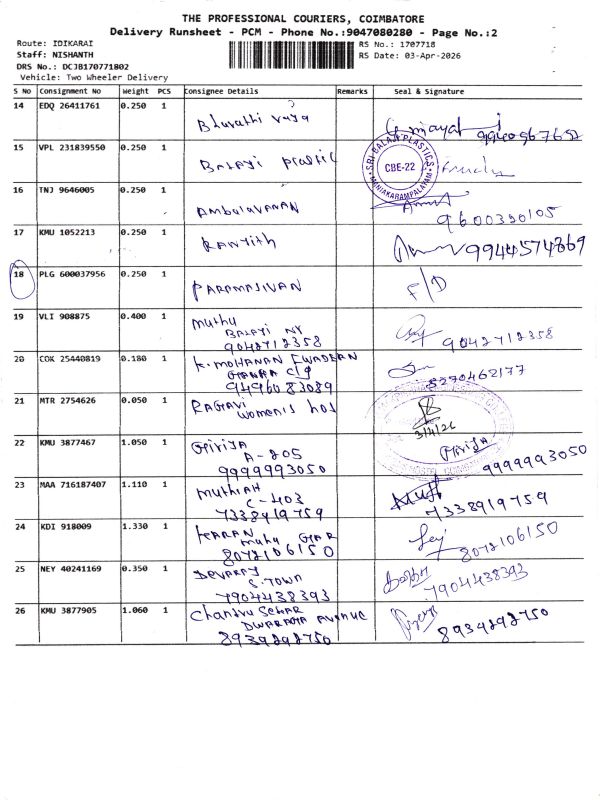 THE PROFESSIONAL COURIERS, COIMBATORE
Delivery Runsheet - PCM - Phone No.:9047080280 - Page No.:2
Route: IDIKARAI
Staff: NISHANTH
DRS No.: DCJB170771802
Vehicle: Two Wheeler Delivery
RS No.: 1707718
RS Date: 03-Apr-2026
S No Consignment No Weight PCS Consignee Details Remarks Seal & Signature
14 EDQ 26411761 0.250 1
15 VPL 231839550 0.250 1 Balaji Plastic
SRI BALAJI PLASTICS
CBE-22
MANIAKARAMPALAYAM
16 TNJ 9646005 0.250 1 Ambalavanan
9600390105
17 KMU 1052213 0.250 1 Ranjith 9944574869
18 PLG 600037956 0.250 1 Paramasivan F/D
19 VLI 908875 0.400 1 Muthu
Balaji NY
9042712358 9042712358
20 COK 25440819 0.180 1 K. Mohanan
9496083089 8270462177
21 MTR 2754626 0.050 1 Ragavi
Women's hos
3/4/26
22 KMU 3877467 1.050 1 Girija Girija
A-205
9999993050 9999993050
23 MAA 716187407 1.110 1 Muthiah
C-403
7338919759 7338919759
24 KDI 918009 1.330 1 Karan
8072106150 8072106150
25 NEY 40241169 0.350 1 Devaraj
S. Town
7904438393 7904438393
26 KMU 3877905 1.060 1 Chandru Sekar
Dwaraka Avenue
8939292750 8939292750